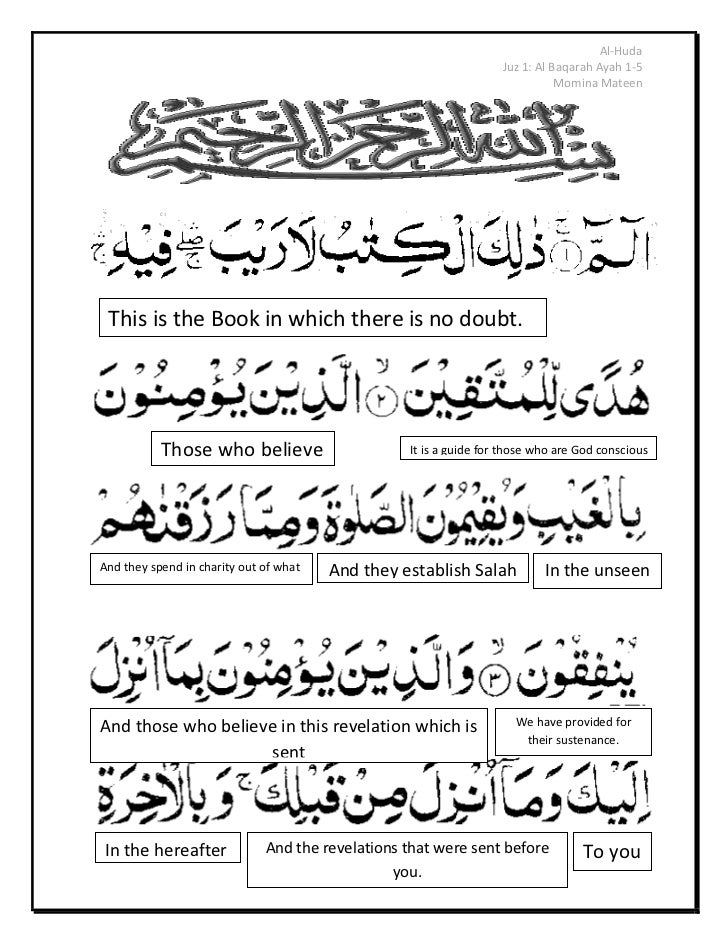 Al-Huda
Juz 1: Al Baqarah Ayah 1-5
Momina Mateen
بِسْمِ اللهِ الرَّحْمٰنِ الرَّحِيْمِ
الٓـمّٓ ۚ ﴿١﴾ ذٰلِكَ الْكِتٰبُ لَا رَيْبَ ۛۖ فِيْهِ ۛۚ
This is the Book in which there is no doubt.
هُدًى لِّلْمُتَّقِيْنَ ۙ ﴿٢﴾ الَّذِيْنَ يُؤْمِنُوْنَ
It is a guide for those who are God conscious
Those who believe
بِالْغَيْبِ وَيُقِيْمُوْنَ الصَّلٰوةَ وَمِمَّا رَزَقْنٰهُمْ
In the unseen
And they establish Salah
And they spend in charity out of what
يُنْفِقُوْنَ ۙ ﴿٣﴾ وَالَّذِيْنَ يُؤْمِنُوْنَ بِمَآ اُنْزِلَ
We have provided for
their sustenance.
And those who believe in this revelation which is
sent
اِلَيْكَ وَمَآ اُنْزِلَ مِنْ قَبْلِكَ ۚ وَبِالْاٰخِرَةِ
To you
And the revelations that were sent before
you.
In the hereafter